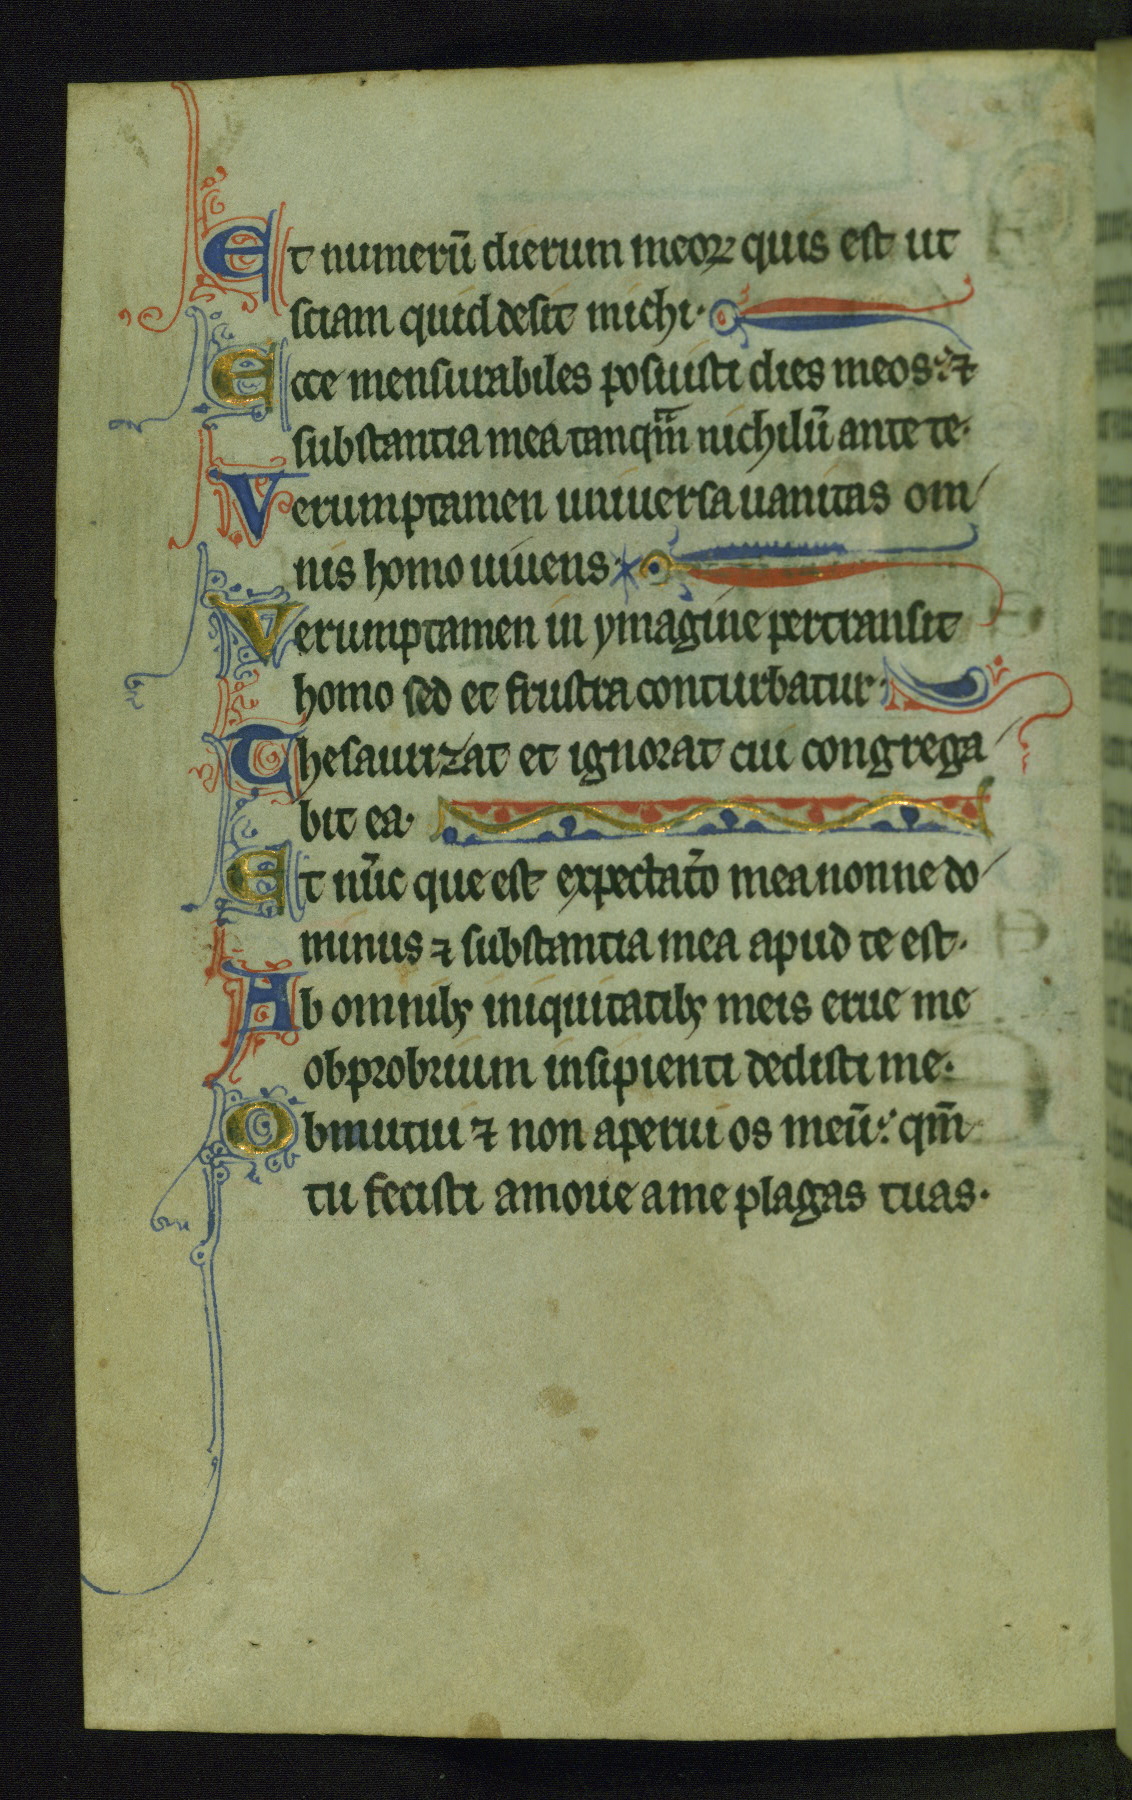 Et numerū dierum meoꝝ quis est ut
sciam quid desit michi·
Ecce mensurabiles posuisti dies meos: ⁊
substantia mea tanqm̄ nichilū ante te·
Verumptamen uniuersa uanitas om
nis homo uiuens·
Verumptamen in ymagine pertransit
homo sed et frustra conturbatur·
Thesaurizat et ignorat cui congrega
bit ea·
Et nūc que est expectatō mea nonne do
minus ⁊ substantia mea apud te est·
Ab omnibꝫ iniquitatibꝫ meis erue me
obprobrium insipienti dedisti me·
Obmutui ⁊ non aperui os meū: qm̄
tu fecisti amoue a me plagas tuas·